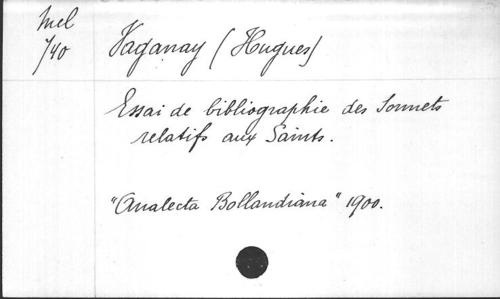 Mel
740
Vaganay (Hugues)
Essai de bibliographie des Sonnets
relatifs aux Saints.
"Analecta Bollandiana" 1900.